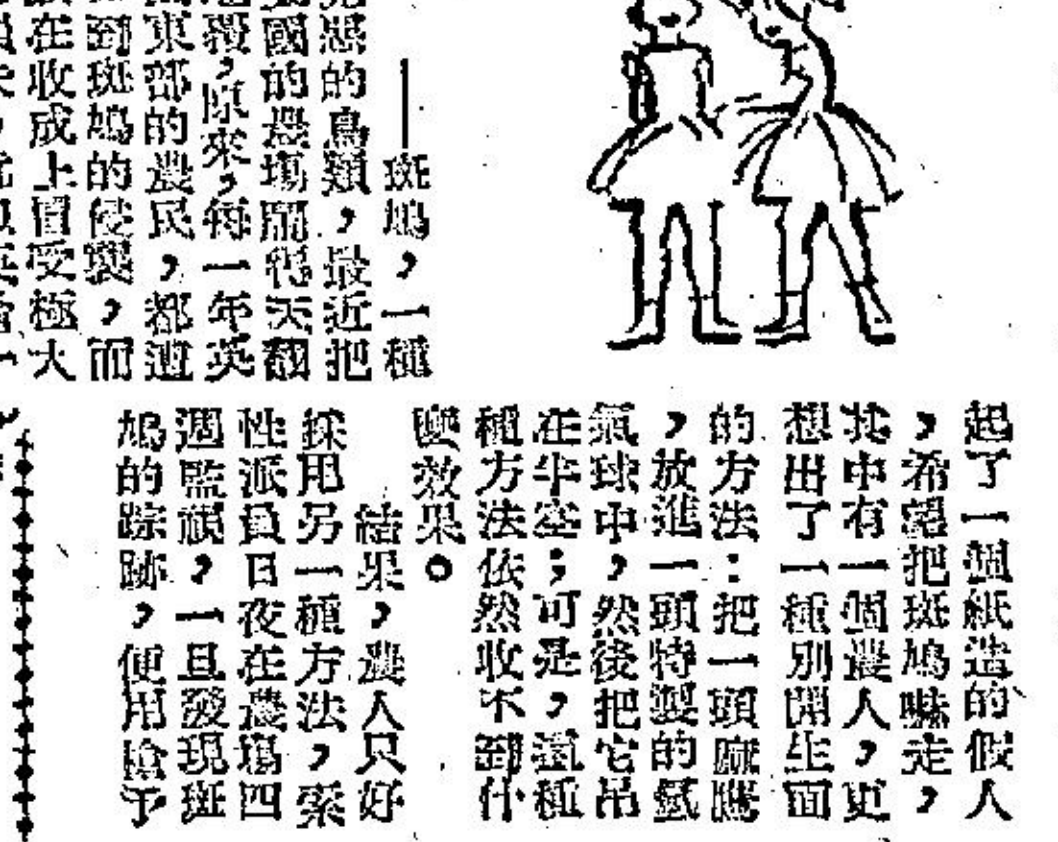 ——斑鳩，一種
惡的鳥類，最近把
國的農場鬧得天翻
覆，原來，每一年英
東部的農民，都遭
到斑鳩的侵襲，而
在收成上受極大
起了一個紙造的假人
，希望把斑鳩嚇走，
其中有一個農人，更
想出了一種別開生面
的方法：把一頭麻鷹
，放進一頭特製的氫
氣球中，然後把它吊
在半空；可是，這種
種方法依然收不到什
麼效果。
結果，農人只好
採用另一種方法，索
性派員日夜在農場四
週監視，一旦發現斑
鳩的踪跡，便用鎗予